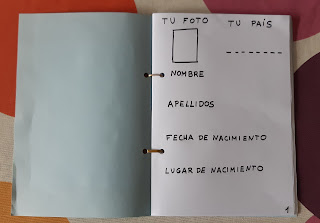 TU FOTO TU PAÍS
NOMBRE
APELLIDOS
FECHA DE NACIMIENTO
LUGAR DE NACIMIENTO
1